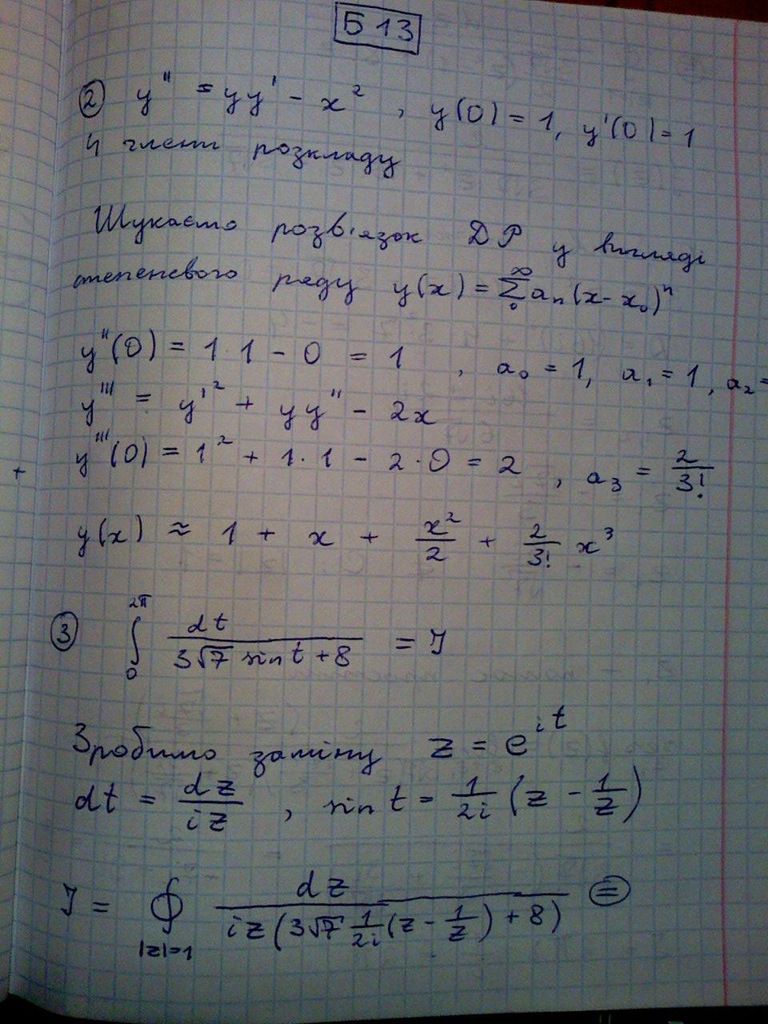 Б 13
② y'' = yy' - x², y(0) = 1, y'(0) = 1
4 члени розкладу
Шукаємо розв'язок ДР у вигляді
степеневого ряду y(x) = ∑₀^∞ aₙ(x-x₀)ⁿ
y''(0) = 1·1 - 0 = 1, a₀ = 1, a₁ = 1, a₂ =
y''' = y'² + yy'' - 2x
y'''(0) = 1² + 1·1 - 2·0 = 2, a₃ = 2/3!
y(x) ≈ 1 + x + x²/2 + 2/3! x³
③ ∫₀^2π dt/(3√7 sin t + 8) = I
Зробимо заміну z = e^it
dt = dz/iz, sin t = 1/2i (z - 1/z)
I = ∮_|z|=1 dz/(iz(3√7 1/2i (z - 1/z) + 8)) ⊜